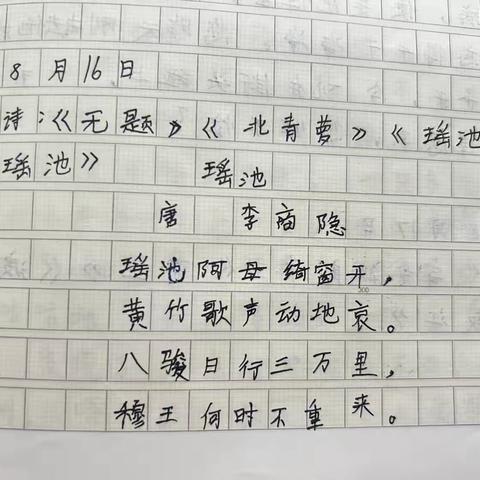 8月16日
诗:《无题》《北青萝》《瑶池
瑶池》 瑶池
唐 李商隐
瑶池阿母绮窗开,
黄竹歌声动地哀。
八骏日行三万里,
穆王何时不重来。